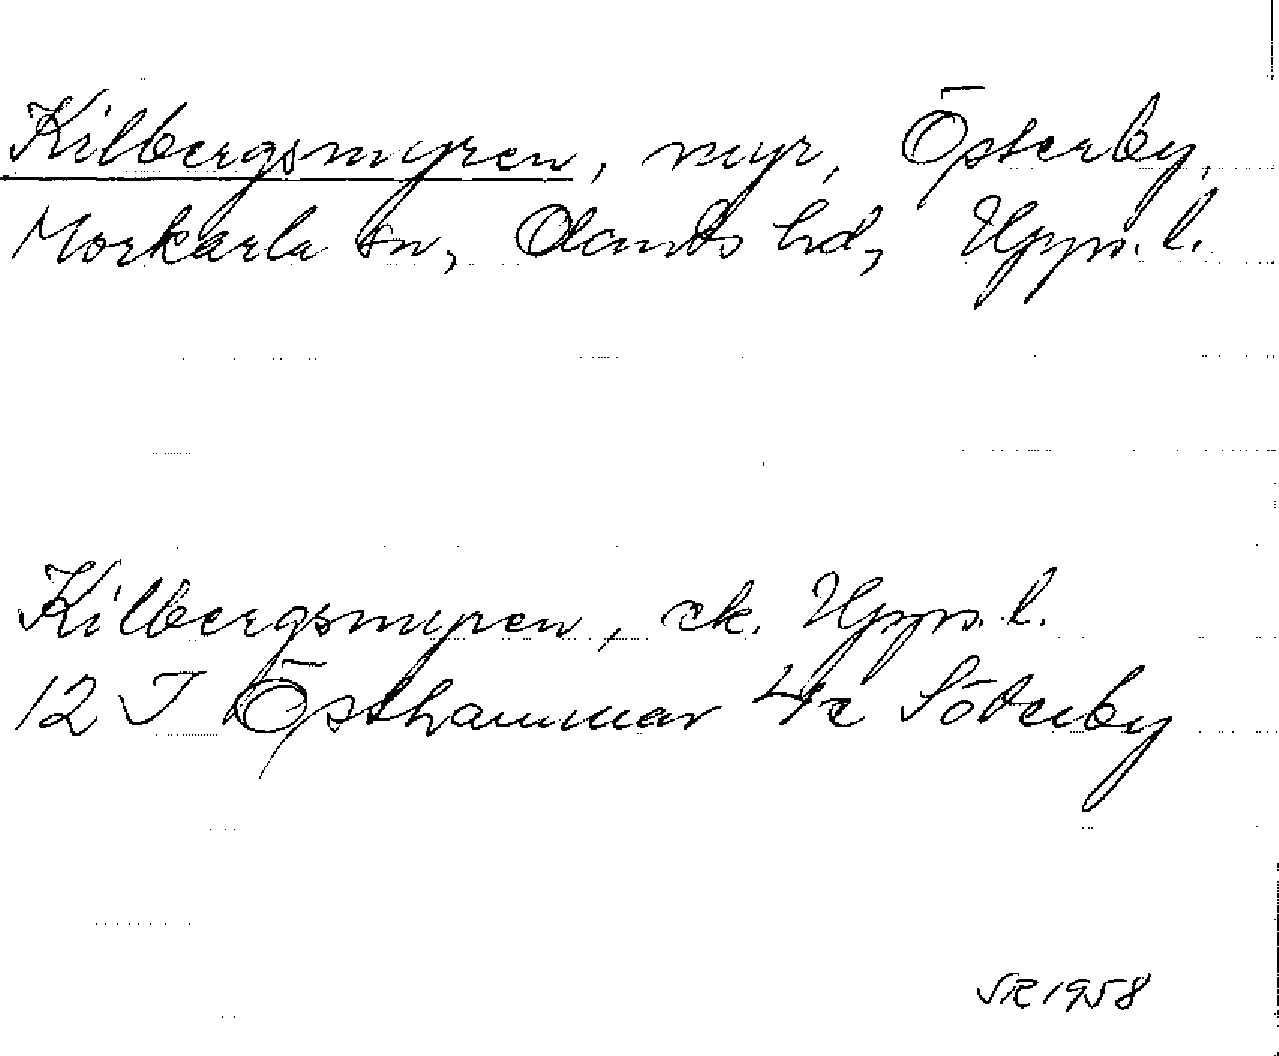 Kilbergsmyren, myr, Österby,
Morkarla sn, Olands hd, Upps. l.
Kilbergsmyren, ek. Upps. l.
12 I Östhammar 4c Söderby
SR 1958